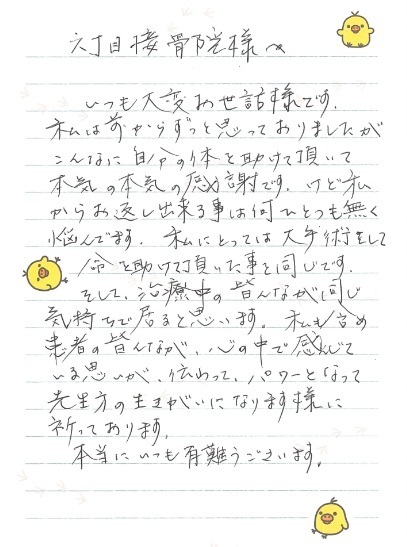 六丁目接骨院様へ
いつも大変お世話様です.
私は前からずっと思っておりましたが
こんなに自分の体を助けて頂いて
本気の本気の感謝です. けど私
からお返し出来る事は何ひとつも無く
悩んでます. 私にとっては大手術をして
命を助けて頂いた事と同じです.
そして、治療中の皆んなが同じ
気持ちで居ると思います。私も含め
患者の皆んなが、心の中で感んじて
いる思いが、伝わって、パワーとなって
先生方の生きがいになります様に
祈っております.
本当にいつも有難うございます。